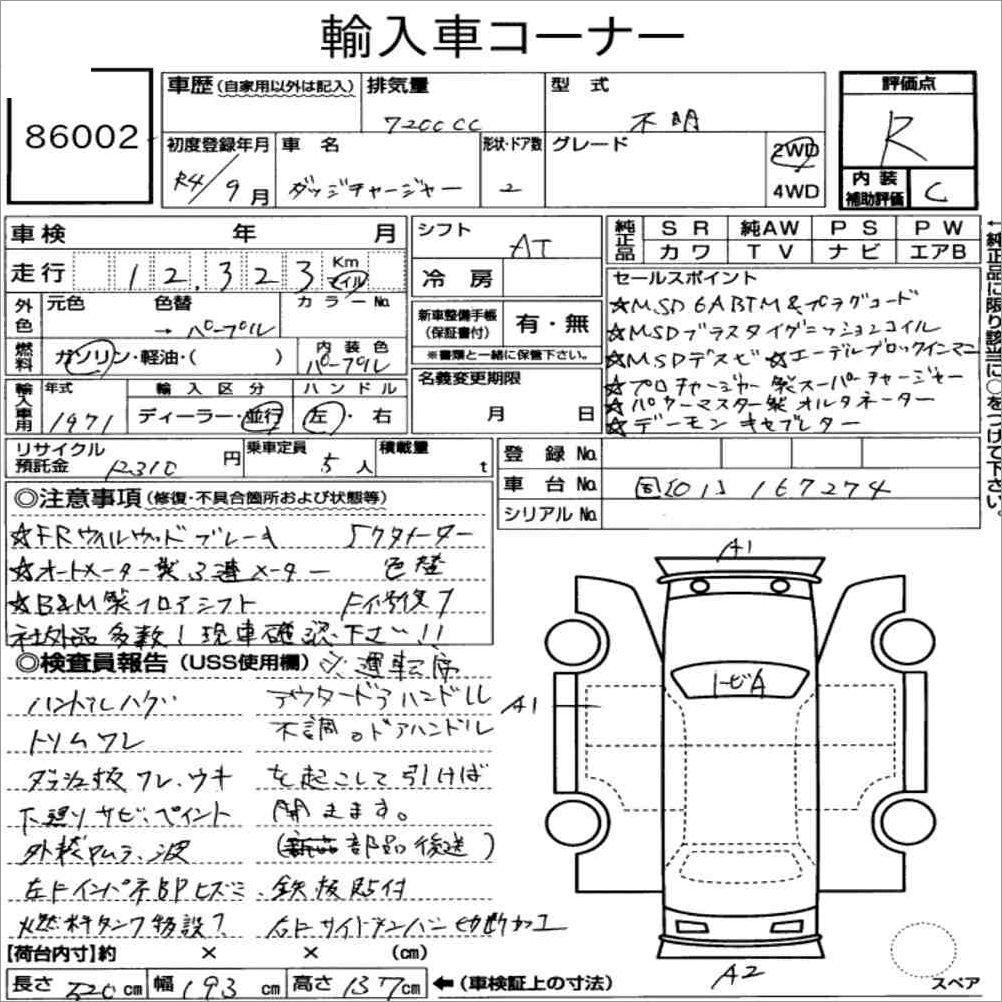 輸入車コーナー
86002
車歴(自家用以外は記入)
排気量
7200CC
型式
不明
評価点
R
初度登録年月
R4/9月
車名
ダッジチャージャー
形状・ドア数
2
グレード
2WD
4WD
内装
補助評価
C
車検 年 月
走行 12,323 Km マイル
シフト
AT
冷房
純正品
SR 純AW PS PW
カワ TV ナビ エアB
←純正品に限り該当に○をつけて下さい。
外色
元色 色替 カラーNo.
→パープル
燃料
ガソリン・軽油・( )
内装色
パープル
新車整備手帳
(保証書付)
有・無
※書類と一緒に保管下さい。
名義変更期限
月 日
セールスポイント
☆MSD 6ABTM&プラグコード
☆MSDブラスタイグニッションコイル
☆MSDデスビ ☆エーデルブロックインマニ
☆プロチャージャー製スーパーチャージャー
☆パワーマスター製オルタネーター
☆デーモンキャブレター
輸入車用
年式
1971
輸入区分
ディーラー・並行
ハンドル
左・右
リサイクル
預託金
R310円
乗車定員
5人
積載量
t
登録No.
車台No.
国[01] 167274
シリアルNo.
◎注意事項(修復・不具合箇所および状態等)
☆FRウィルウッドブレーキ 5クタメーター
☆オートメーター製3連メーター 色替
☆B&M製フロアシフト F修復
社外品多数!現車確認下さい!!
◎検査員報告(USS使用欄)
ハンドルハゲ
トリムワレ
ダッシュ板ワレ、ウキ
下廻りサビ、ペイント
外装ムラ、波
左Fインパネ部Pヒズミ
燃料タンク移設
※運転席
アウタードアハンドル
不調。ドアハンドル
を起こして引けば
開きます。
(部品後送)
鉄板貼付
右Fサイドメンバー切断加工
A1
トビA
A1
A2
スペア
[荷台内寸]約 × × (cm)
長さ 520cm 幅 193cm 高さ 137cm ←(車検証上の寸法)